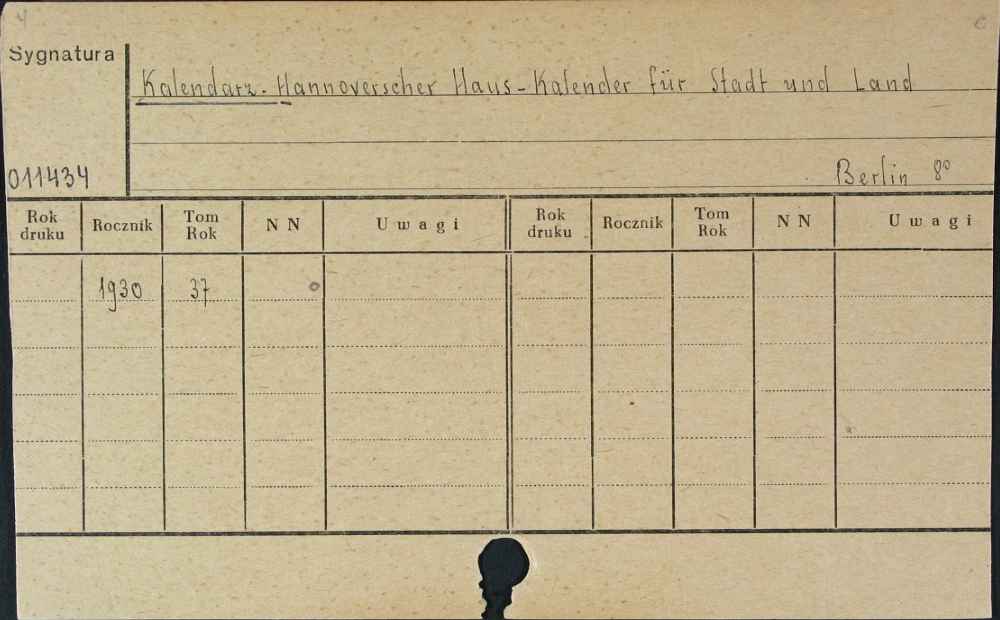 Sygnatura
Kalendarz. Hannoverscher Haus-Kalender für Stadt und Land
011434
Berlin 8°
Rok druku Rocznik Tom Rok N N Uwagi Rok druku Rocznik Tom Rok N N Uwagi
1930 37